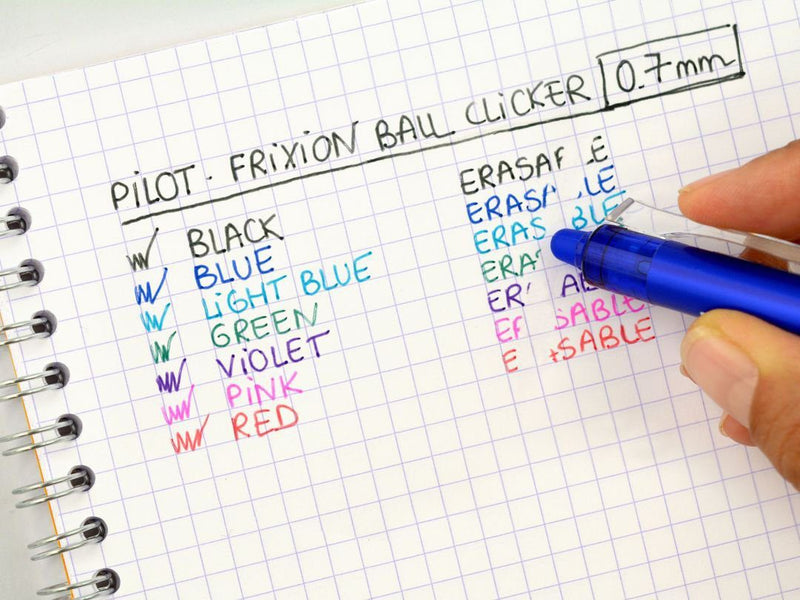 PILOT. FRIXION BALL CLICKER 0.7mm
BLACK
BLUE
LIGHT BLUE
GREEN
VIOLET
PINK
RED
ERASA LE
ERAS LE
ERAS BLE
ERA
ER A
E SABLE
E SABLE